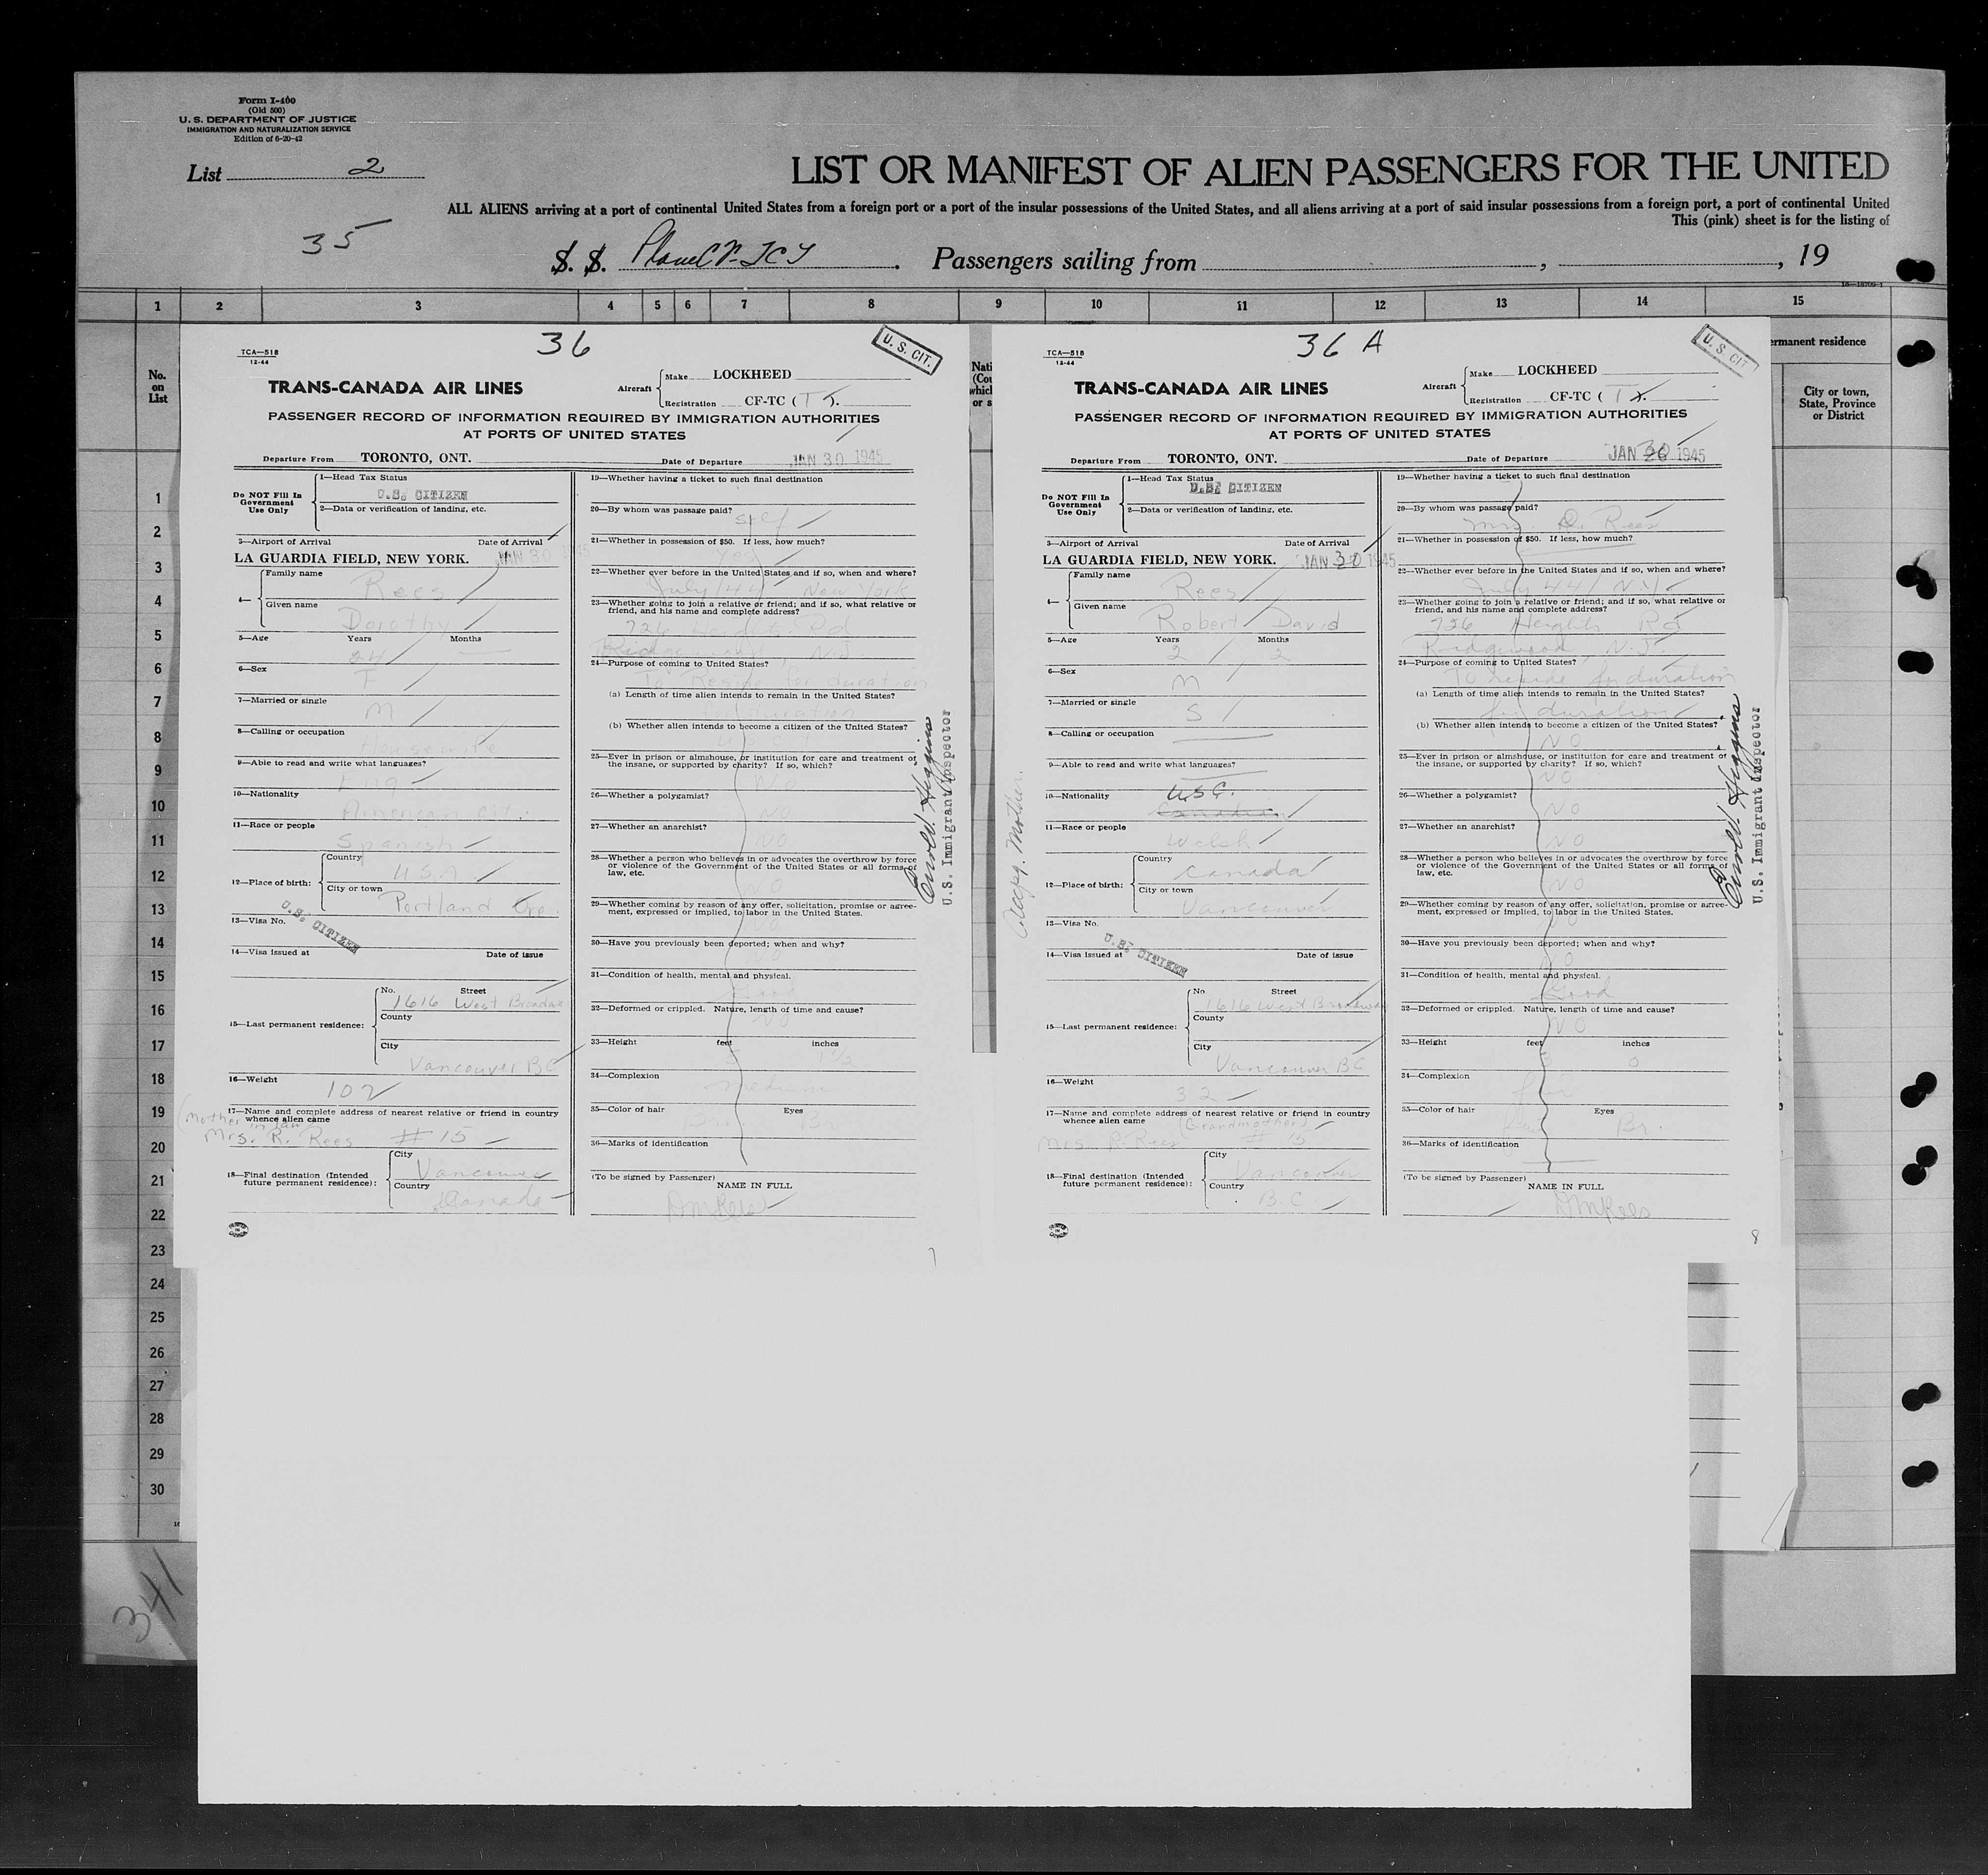 Form I-400
(Old 500)
U. S. DEPARTMENT OF JUSTICE
IMMIGRATION AND NATURALIZATION SERVICE
Edition of 6-20-42
List 2
LIST OR MANIFEST OF ALIEN PASSENGERS FOR THE UNITED
ALL ALIENS arriving at a port of continental United States from a foreign port or a port of the insular possessions of the United States, and all aliens arriving at a port of said insular possessions from a foreign port, a port of continental United
This (pink) sheet is for the listing of
35
S. S. Passengers sailing from , , 19
1 2 3 4 5 6 7 8 9 10 11 12 13 14 15
No.
on
List
ermanent residence
City or town,
State, Province
or District
1
2
3
4
5
6
7
8
9
10
11
12
13
14
15
16
17
18
19
20
21
22
23
24
25
26
27
28
29
30
341
36
U. S. CIT.
TCA—518
12-44
TRANS-CANADA AIR LINES
Aircraft
Make LOCKHEED
Registration CF-TC (T J).
PASSENGER RECORD OF INFORMATION REQUIRED BY IMMIGRATION AUTHORITIES
AT PORTS OF UNITED STATES
Departure From TORONTO, ONT. Date of Departure JAN 30 1945
Do NOT Fill In
Government
Use Only
1—Head Tax Status
U.S. CITIZEN
2—Data or verification of landing, etc.
3—Airport of Arrival Date of Arrival
LA GUARDIA FIELD, NEW YORK. JAN 30 1945
4—
Family name
Rees
Given name
Dorothy
5—Age Years Months
24
6—Sex
F
7—Married or single
M
8—Calling or occupation
Housewife
9—Able to read and write what languages?
Eng
10—Nationality
American
11—Race or people
Spanish
12—Place of birth:
Country
U.S.A.
City or town
Portland Ore.
13—Visa No.
U.S. CITIZEN
14—Visa issued at Date of issue
15—Last permanent residence:
No. Street
1616 West Broadway
County
City
Vancouver BC
16—Weight
102
17—Name and complete address of nearest relative or friend in country
whence alien came
(Mother in law)
Mrs. R. Rees # 15
18—Final destination (Intended
future permanent residence):
City
Vancouver
Country
Canada
19—Whether having a ticket to such final destination
20—By whom was passage paid?
self
21—Whether in possession of $50. If less, how much?
Yes
22—Whether ever before in the United States and if so, when and where?
July 44 New York
23—Whether going to join a relative or friend; and if so, what relative or
friend, and his name and complete address?
726 Heights Rd
Ridgewood, N.J.
24—Purpose of coming to United States?
To Reside for duration
(a) Length of time alien intends to remain in the United States?
duration
(b) Whether alien intends to become a citizen of the United States?
25—Ever in prison or almshouse, or institution for care and treatment of
the insane, or supported by charity? If so, which?
No
26—Whether a polygamist?
No
27—Whether an anarchist?
No
28—Whether a person who believes in or advocates the overthrow by force
or violence of the Government of the United States or all forms of
law, etc.
No
29—Whether coming by reason of any offer, solicitation, promise or agree-
ment, expressed or implied, to labor in the United States.
No
30—Have you previously been deported; when and why?
No
31—Condition of health, mental and physical.
Good
32—Deformed or crippled. Nature, length of time and cause?
No
33—Height feet inches
5 1 1/2
34—Complexion
medium
35—Color of hair Eyes
Br. Br.
36—Marks of identification
(To be signed by Passenger)
NAME IN FULL
DMRees
U.S. Immigrant Inspector
7
36 A
U. S. CIT.
TCA—518
12-44
TRANS-CANADA AIR LINES
Aircraft
Make LOCKHEED
Registration CF-TC (T J).
PASSENGER RECORD OF INFORMATION REQUIRED BY IMMIGRATION AUTHORITIES
AT PORTS OF UNITED STATES
Departure From TORONTO, ONT. Date of Departure JAN 30 1945
Do NOT Fill In
Government
Use Only
1—Head Tax Status
U.S. CITIZEN
2—Data or verification of landing, etc.
3—Airport of Arrival Date of Arrival
LA GUARDIA FIELD, NEW YORK. JAN 30 1945
4—
Family name
Rees
Given name
Robert David
5—Age Years Months
2 2
6—Sex
M
7—Married or single
S
8—Calling or occupation
9—Able to read and write what languages?
10—Nationality
USC.
Canadian
11—Race or people
Welsh
12—Place of birth:
Country
Canada
City or town
Vancouver
13—Visa No.
U.S. CITIZEN
14—Visa issued at Date of issue
15—Last permanent residence:
No. Street
1616 West Broadway
County
City
Vancouver BC
16—Weight
32
17—Name and complete address of nearest relative or friend in country
whence alien came
(Grandmother)
Mrs. R. Rees # 15
18—Final destination (Intended
future permanent residence):
City
Vancouver
Country
B.C.
Accpg. Mother.
19—Whether having a ticket to such final destination
20—By whom was passage paid?
Mrs. D. Rees
21—Whether in possession of $50. If less, how much?
22—Whether ever before in the United States and if so, when and where?
July 44 N.Y.
23—Whether going to join a relative or friend; and if so, what relative or
friend, and his name and complete address?
726 Heights Rd
Ridgewood, N.J.
24—Purpose of coming to United States?
To reside for duration
(a) Length of time alien intends to remain in the United States?
for duration
(b) Whether alien intends to become a citizen of the United States?
No
25—Ever in prison or almshouse, or institution for care and treatment of
the insane, or supported by charity? If so, which?
No
26—Whether a polygamist?
No
27—Whether an anarchist?
No
28—Whether a person who believes in or advocates the overthrow by force
or violence of the Government of the United States or all forms of
law, etc.
No
29—Whether coming by reason of any offer, solicitation, promise or agree-
ment, expressed or implied, to labor in the United States.
No
30—Have you previously been deported; when and why?
No
31—Condition of health, mental and physical.
Good
32—Deformed or crippled. Nature, length of time and cause?
No
33—Height feet inches
3 0
34—Complexion
fair
35—Color of hair Eyes
Br.
36—Marks of identification
(To be signed by Passenger)
NAME IN FULL
DMRees
U.S. Immigrant Inspector
8